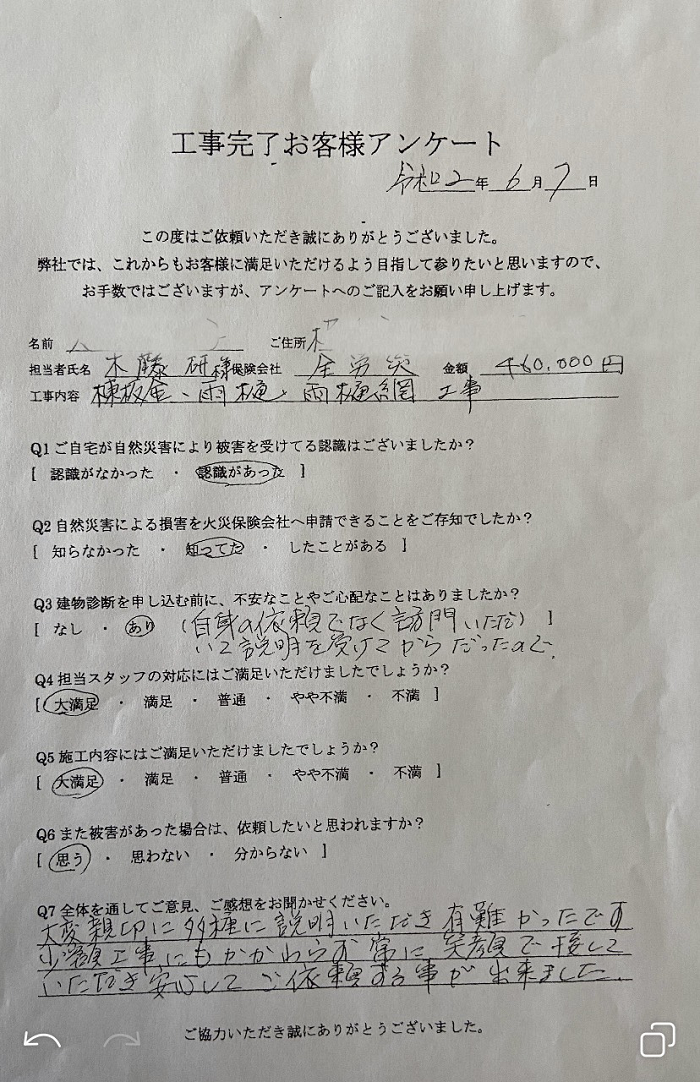 工事完了お客様アンケート
令和2年 6月 7日
この度はご依頼いただき誠にありがとうございました。
弊社では、これからもお客様に満足いただけるよう目指して参りたいと思いますので、
お手数ではございますが、アンケートへのご記入をお願い申し上げます。
名前 ご住所
担当者氏名 木藤 研様 保険会社 全労災 金額 460,000円
工事内容 棟板金、雨樋、雨樋網 工事
Q1 ご自宅が自然災害により被害を受けてる認識はございましたか?
[ 認識がなかった ・ 認識があった ]
Q2 自然災害による損害を火災保険会社へ申請できることをご存知でしたか?
[ 知らなかった ・ 知ってた ・ したことがある ]
Q3 建物診断を申し込む前に、不安なことやご心配なことはありましたか?
[ なし ・ あり (自身の依頼でなく訪問いただ) ]
いて説明を受けてからだったので。
Q4 担当スタッフの対応にはご満足いただけましたでしょうか?
[ 大満足 ・ 満足 ・ 普通 ・ やや不満 ・ 不満 ]
Q5 施工内容にはご満足いただけましたでしょうか?
[ 大満足 ・ 満足 ・ 普通 ・ やや不満 ・ 不満 ]
Q6 また被害があった場合は、依頼したいと思われますか?
[ 思う ・ 思わない ・ 分からない ]
Q7 全体を通してご意見、ご感想をお聞かせください。
大変親切に多種に説明いただき有難かったです
少額工事にもかかわらず常に笑顔で接して
いただき安心してご依頼する事が出来ました。
ご協力いただき誠にありがとうございました。